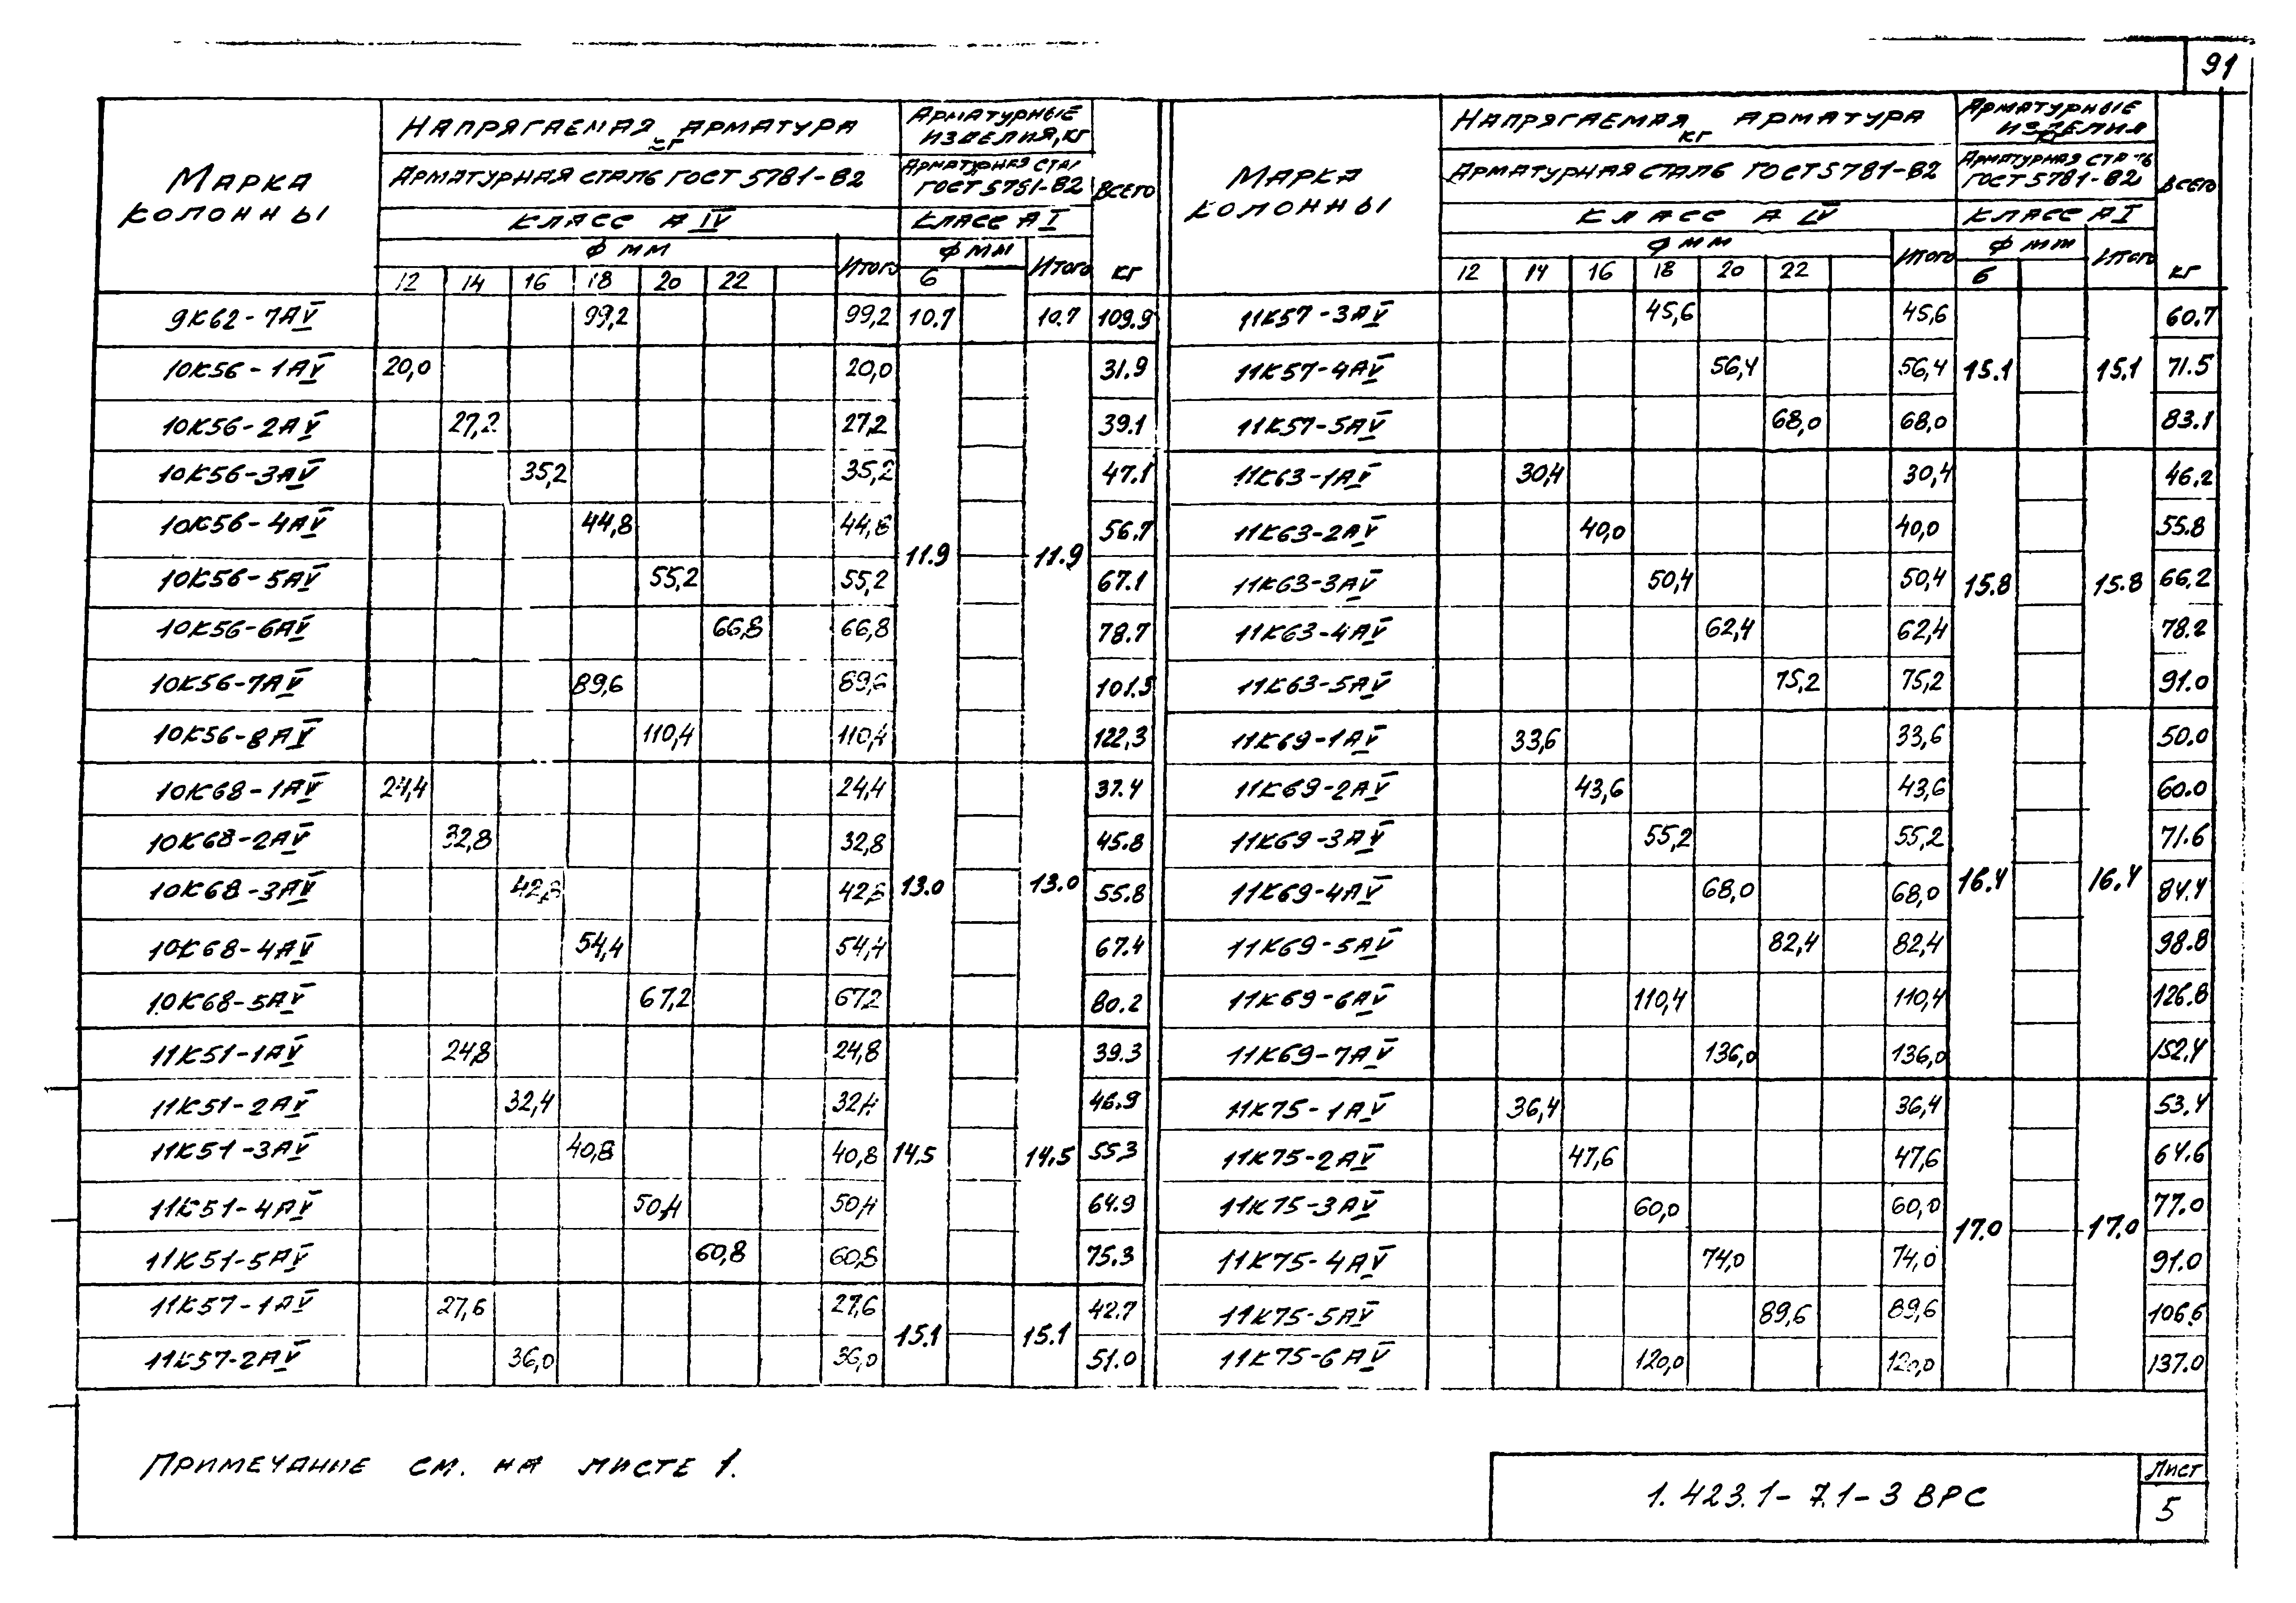 91
Марка колонны | Напрягаемая арматура кг | Арматурные изделия, кг | Всего кг
Арматурная сталь ГОСТ 5781-82 | Арматурная стал ГОСТ 5781-82
Класс А IV | Класс А I
Ф мм | Итого | Ф мм | Итого
12 | 14 | 16 | 18 | 20 | 22 | 6
9К62-7АIV | 99,2 | 99,2 | 10.7 | 10.7 | 109.9
10К56-1АIV | 20,0 | 20,0 | 31.9
10К56-2АIV | 27,2 | 27,2 | 39.1
10К56-3АIV | 35,2 | 35,2 | 47.1
10К56-4АIV | 44,8 | 44,8 | 56.7
11.9 | 11.9
10К56-5АIV | 55,2 | 55,2 | 67.1
10К56-6АIV | 66,8 | 66,8 | 78.7
10К56-7АIV | 89,6 | 89,6 | 101.5
10К56-8АIV | 110,4 | 110,4 | 122,3
10К68-1АIV | 24,4 | 24,4 | 37.4
10К68-2АIV | 32,8 | 32,8 | 45.8
10К68-3АIV | 42,8 | 42,8 | 13.0 | 13.0 | 55.8
10К68-4АIV | 54,4 | 54,4 | 67.4
10К68-5АIV | 67,2 | 67,2 | 80.2
11К51-1АIV | 24,8 | 24,8 | 39.3
11К51-2АIV | 32,4 | 32,4 | 46.9
11К51-3АIV | 40,8 | 40,8 | 14.5 | 14.5 | 55.3
11К51-4АIV | 50,4 | 50,4 | 64.9
11К51-5АIV | 60,8 | 60,8 | 75.3
11К57-1АIV | 27,6 | 27,6 | 42.7
15.1 | 15.1
11К57-2АIV | 36,0 | 36,0 | 51.0
Марка колонны | Напрягаемая арматура кг | Арматурные изделия кг | Всего кг
Арматурная сталь ГОСТ 5781-82 | Арматурная сталь ГОСТ 5781-82
Класс А IV | Класс А I
Ф мм | Итого | Ф мм | Итого
12 | 14 | 16 | 18 | 20 | 22 | 6
11К57-3АIV | 45,6 | 45,6 | 60.7
11К57-4АIV | 56,4 | 56,4 | 15.1 | 15.1 | 71.5
11К57-5АIV | 68,0 | 68,0 | 83.1
11К63-1АIV | 30,4 | 30,4 | 46.2
11К63-2АIV | 40,0 | 40,0 | 55.8
11К63-3АIV | 50,4 | 50,4 | 15.8 | 15.8 | 66.2
11К63-4АIV | 62,4 | 62,4 | 78.2
11К63-5АIV | 75,2 | 75,2 | 91.0
11К69-1АIV | 33,6 | 33,6 | 50.0
11К69-2АIV | 43,6 | 43,6 | 60.0
11К69-3АIV | 55,2 | 55,2 | 71.6
11К69-4АIV | 68,0 | 68,0 | 16.4 | 16.4 | 84.4
11К69-5АIV | 82,4 | 82,4 | 98.8
11К69-6АIV | 110,4 | 110,4 | 126.8
11К69-7АIV | 136,0 | 136,0 | 152.4
11К75-1АIV | 36,4 | 36,4 | 53.4
11К75-2АIV | 47,6 | 47,6 | 64.6
11К75-3АIV | 60,0 | 60,0 | 77.0
17.0 | 17.0
11К75-4АIV | 74,0 | 74,0 | 91.0
11К75-5АIV | 89,6 | 89,6 | 106.6
11К75-6АIV | 120,0 | 120,0 | 137.0
Примечание см. на листе 1.
1.423.1-7.1-3 ВРС
Лист
5